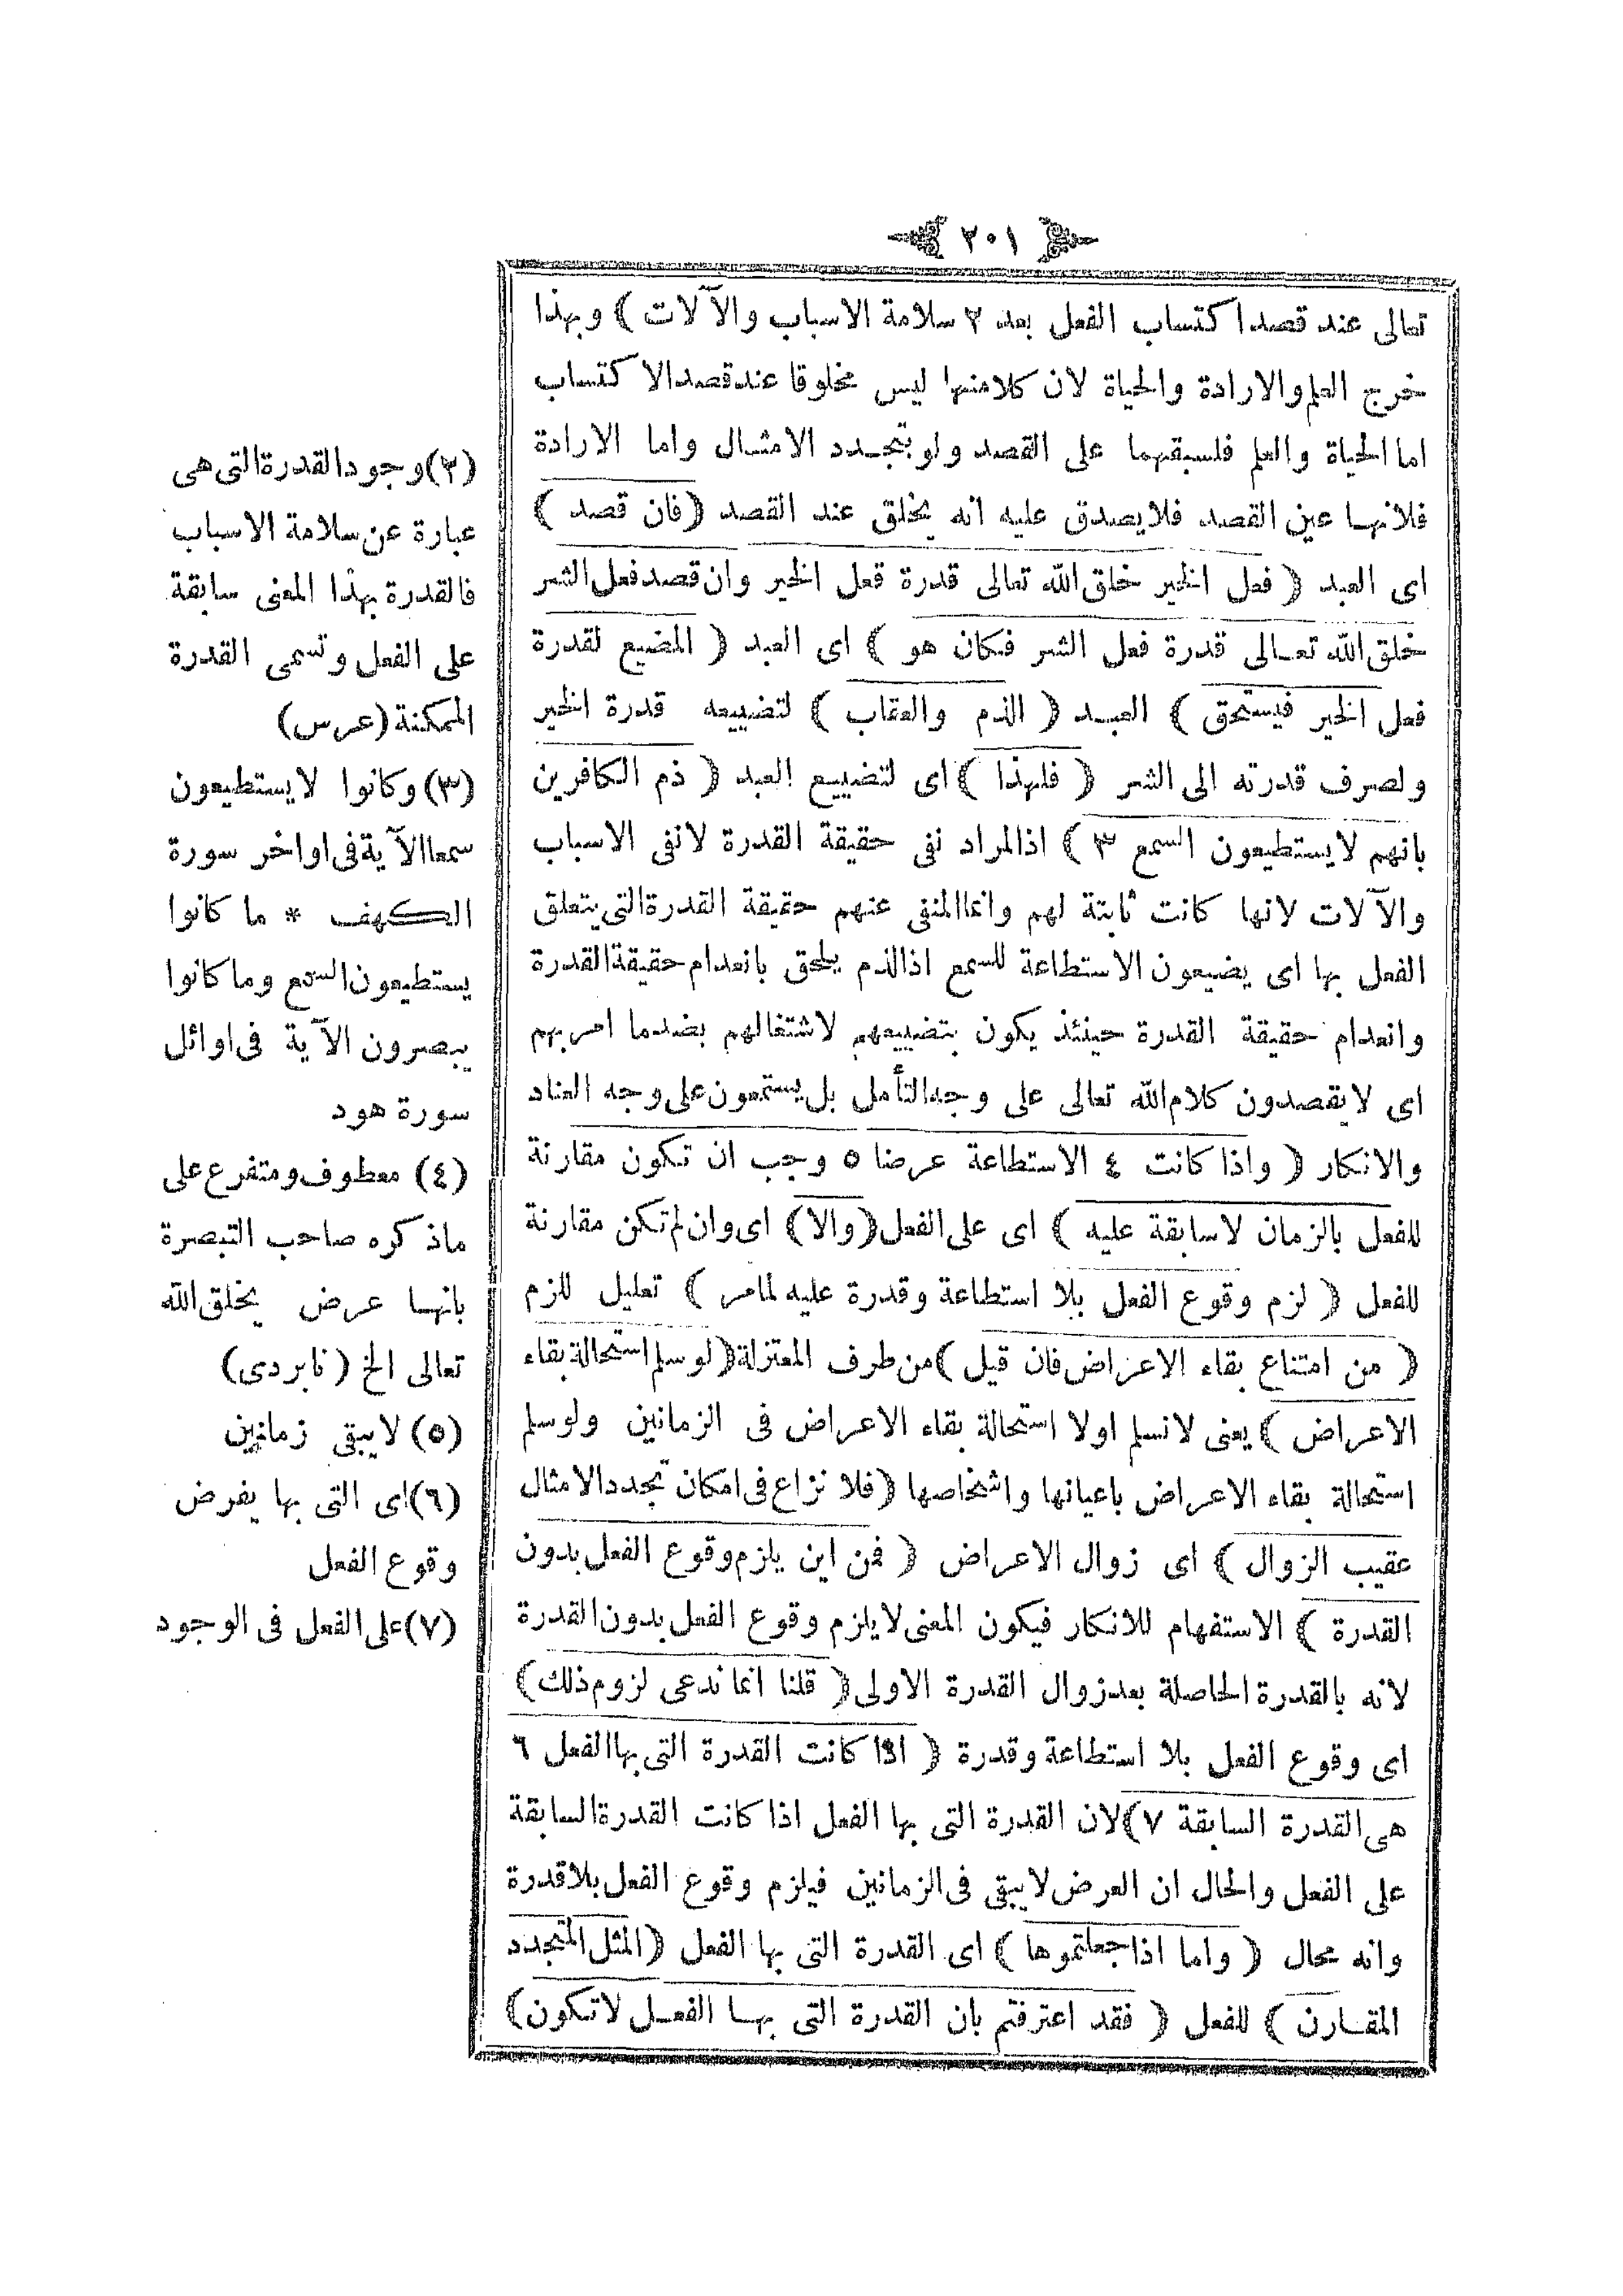 ٢٠١
تعالى عند قصد اكتساب الفعل بعد ٢ سلامة الاسباب والآلات ﴾ وبهذا
خرج العلم والارادة والحياة لان كلا منها ليس مخلوقا عند قصد الاكتساب
اما الحياة والعلم فلسبقهما على القصد ولو بتجدد الامثال واما الارادة
فلانها عين القصد فلا يصدق عليه انه يخلق عند القصد ﴿ فان قصد ﴾
اى العبد ﴿ فعل الخير خلق الله تعالى قدرة فعل الخير وان قصد فعل الشر
خلق الله تعالى قدرة فعل الشر فكان هو ﴾ اى العبد ﴿ المضيع لقدرة
فعل الخير فيستحق ﴾ العبد ﴿ الذم والعقاب ﴾ لتضييعه قدرة الخير
ولصرف قدرته الى الشر ﴿ فلهذا ﴾ اى لتضييع العبد ﴿ ذم الكافرين
بانهم لا يستطيعون السمع ٣ ﴾ اذ المراد نفى حقيقة القدرة لا نفى الاسباب
والآلات لانها كانت ثابتة لهم وانما المنفى عنهم حقيقة القدرة التى يتعلق
الفعل بها اى يضيعون الاستطاعة للسمع اذ الذم يلحق بانعدام حقيقة القدرة
وانعدام حقيقة القدرة حينئذ يكون بتضييعهم لاشتغالهم بضد ما امر بهم
اى لا يقصدون كلام الله تعالى على وجه التأمل بل يستمعون على وجه العناد
والانكار ﴿ واذا كانت ٤ الاستطاعة عرضا ٥ وجب ان تكون مقارنة
للفعل بالزمان لا سابقة عليه ﴾ اى على الفعل ﴿ والا ﴾ اى وان لم تكن مقارنة
للفعل ﴿ لزم وقوع الفعل بلا استطاعة وقدرة عليه لما مر ﴾ تعليل للزم
﴿ من امتناع بقاء الاعراض فان قيل ﴾ من طرف المعتزلة ﴿ لو سلم استحالة بقاء
الاعراض ﴾ يعنى لا نسلم اولا استحالة بقاء الاعراض فى الزمانين ولو سلم
استحالة بقاء الاعراض باعيانها واشخاصها ﴿ فلا نزاع فى امكان تجدد الامثال
عقيب الزوال ﴾ اى زوال الاعراض ﴿ فمن اين يلزم وقوع الفعل بدون
القدرة ﴾ الاستفهام للانكار فيكون المعنى لا يلزم وقوع الفعل بدون القدرة
لانه بالقدرة الحاصلة بعد زوال القدرة الاولى ﴿ قلنا انما ندعى لزوم ذلك ﴾
اى وقوع الفعل بلا استطاعة وقدرة ﴿ اذا كانت القدرة التى بها الفعل ٦
هى القدرة السابقة ٧ ﴾ لان القدرة التى بها الفعل اذا كانت القدرة السابقة
على الفعل والحال ان العرض لا يبقى فى الزمانين فيلزم وقوع الفعل بلا قدرة
وانه محال ﴿ واما اذا جعلتموها ﴾ اى القدرة التى بها الفعل ﴿ المثل المتجدد
المقارن ﴾ للفعل ﴿ فقد اعترفتم بان القدرة التى بها الفعل لا تكون ﴾
(٢) وجود القدرة التى هى
عبارة عن سلامة الاسباب
فالقدرة بهذا المعنى سابقة
على الفعل وتسمى القدرة
الممكنة (عرس)
(٣) وكانوا لا يستطيعون
سمعا الآية فى اواخر سورة
الكهف * ما كانوا
يستطيعون السمع وما كانوا
يبصرون الآية فى اوائل
سورة هود
(٤) معطوف ومتفرع على
ما ذكره صاحب التبصرة
بانها عرض يخلق الله
تعالى الخ (نابردى)
(٥) لا يبقى زمانين
(٦) اى التى بها يفرض
وقوع الفعل
(٧) على الفعل فى الوجود